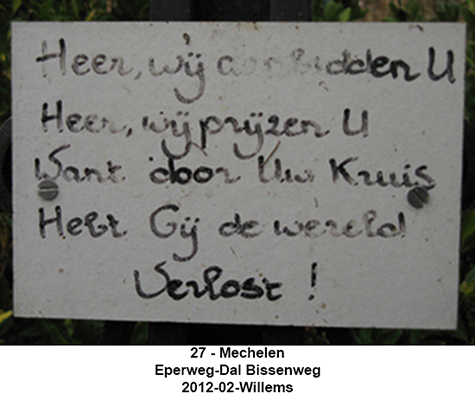 Heer, wij aanbidden U
Heer, wij prijzen U
Want door Uw Kruis
Hebt Gij de wereld
Verlost !
27 - Mechelen
Eperweg-Dal Bissenweg
2012-02-Willems